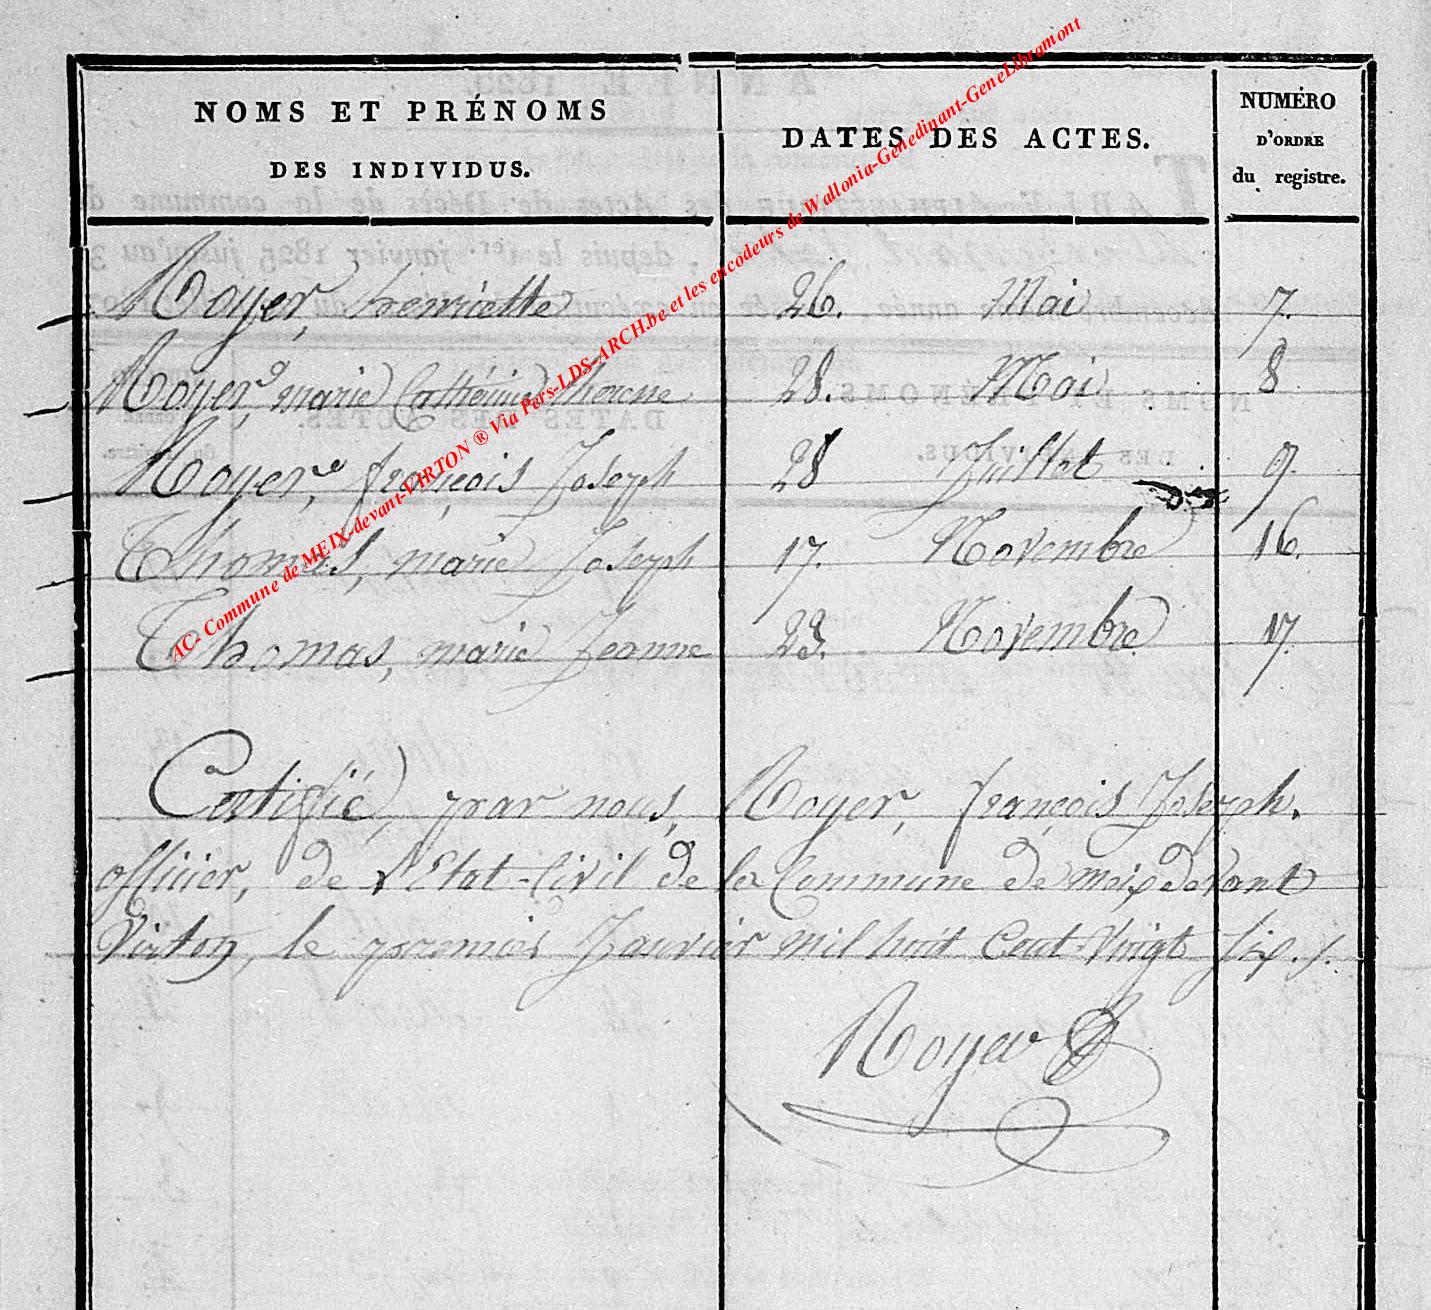 NOMS ET PRÉNOMS
DES INDIVIDUS.
DATES DES ACTES.
NUMÉRO
D'ORDRE
du registre.
Royer, henriette 26. Mai 7.
Royer, marie Cathérine therese 28. Mai 8
Royer, françois Joseph 28 Juillet 9.
Thomas, marie Joseph 17. Novembre 16.
Thomas, marie Jeanne 23. Novembre 17.
Certifié, par nous, Royer, françois Joseph.
officier, de l'Etat-Civil de la Commune de meix devant
Virton, le premier Janvier mil huit Cent Vingt Six./.
Royer
AC- Commune de MEIX-devant-VIRTON ® Via Pers-LDS-ARCH.be et les encodeurs de Wallonia-Genedinant-GeneLibramont